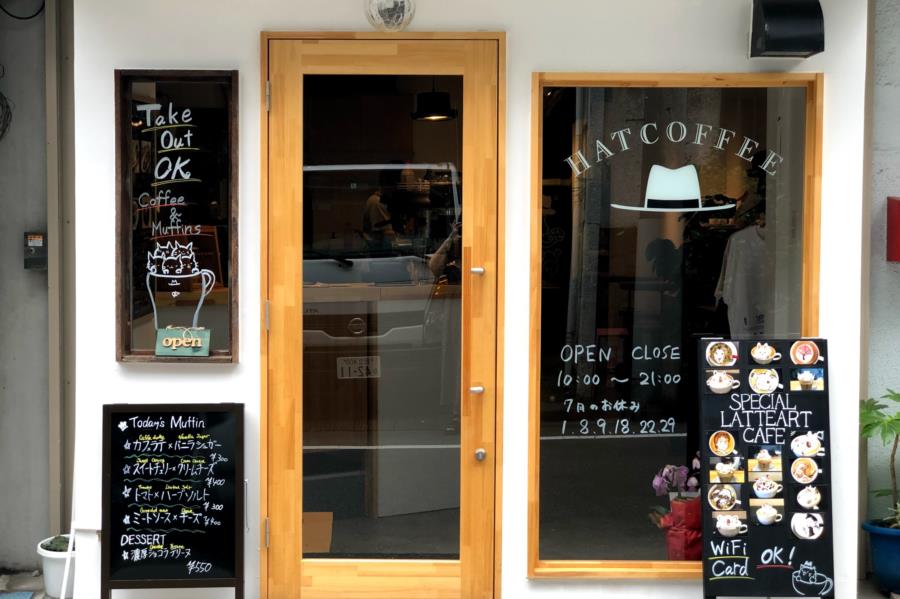 Take
Out
OK
Coffee
&
Muffins
open
HATCOFFEE
OPEN CLOSE
10:00 〜 21:00
7月のお休み
1.8.9.18.22.29
Today's Muffin
カフェラテ×バニラシュガー
¥300
スイートチェリー×クリームチーズ
¥400
トマト×ハーブソルト
¥300
ミートソース×チーズ
¥400
DESSERT
濃厚ショコラブラウニーヌ
¥550
42-11
SPECIAL
LATTEART
CAFE
WiFi OK!
Card